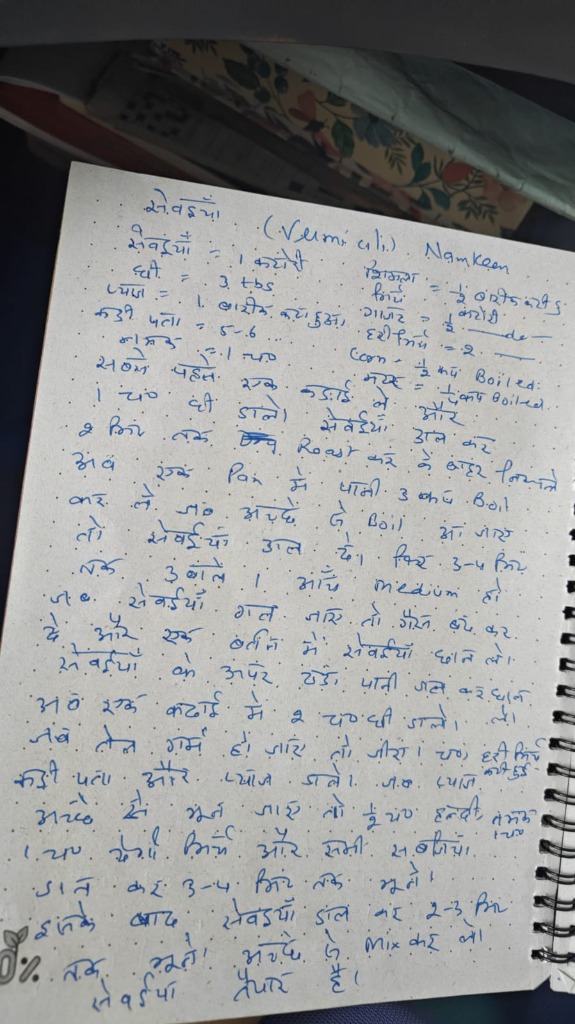 सेवईयाँ (Vermi celi) Namkeen
सेवईयाँ = 1 कटोरी
घी = 3 tbs
प्याज = 1 बारीक कटा हुआ
कड़ी पत्ता = 5-6
नमक = 1 चम
शिमला मिर्च = 1/2 बारीक कटी हु
गाजर = 1/2 कटोरी
हरी मिर्च = 2
Corn - 1/2 कप Boiled.
मटर = 1/4 कप Boiled.
सबसे पहले एक कड़ाई में
1 चम घी डाले। सेवईयाँ डाल कर और
2 मिनट तक Roast कर के बाहर निकाले
अब एक Pan में पानी 3 कप Boil
कर ले जब अच्छे से Boil आ जाए
तो सेवईयाँ डाल दे। फिर 3-4 मिनट
तक उबाले। आँच medium हो
जब सेवईयाँ गल जाए तो गैस बंद कर
दे और एक बर्तन में सेवईयाँ छान ले।
सेवईयाँ के ऊपर ठंडा पानी डाल कर छान ले।
अब एक कढाई में 2 चम घी डाले।
जब तेल गर्म हो जाए तो जीरा 1 चम, हरी मिर्च कटी हुई
कड़ी पत्ता और प्याज डाले। जब प्याज
अच्छे से भून जाए तो 1/2 चम हल्दी, नमक 1 चम
1 चम देगी मिर्च और सभी सब्जियां
डाल कर 3-4 मिनट तक भूने।
इसके बाद सेवईयाँ डाल कर 2-3 मिनट
तक भूने। अच्छे से mix कर ले।
सेवईयाँ तैयार है।